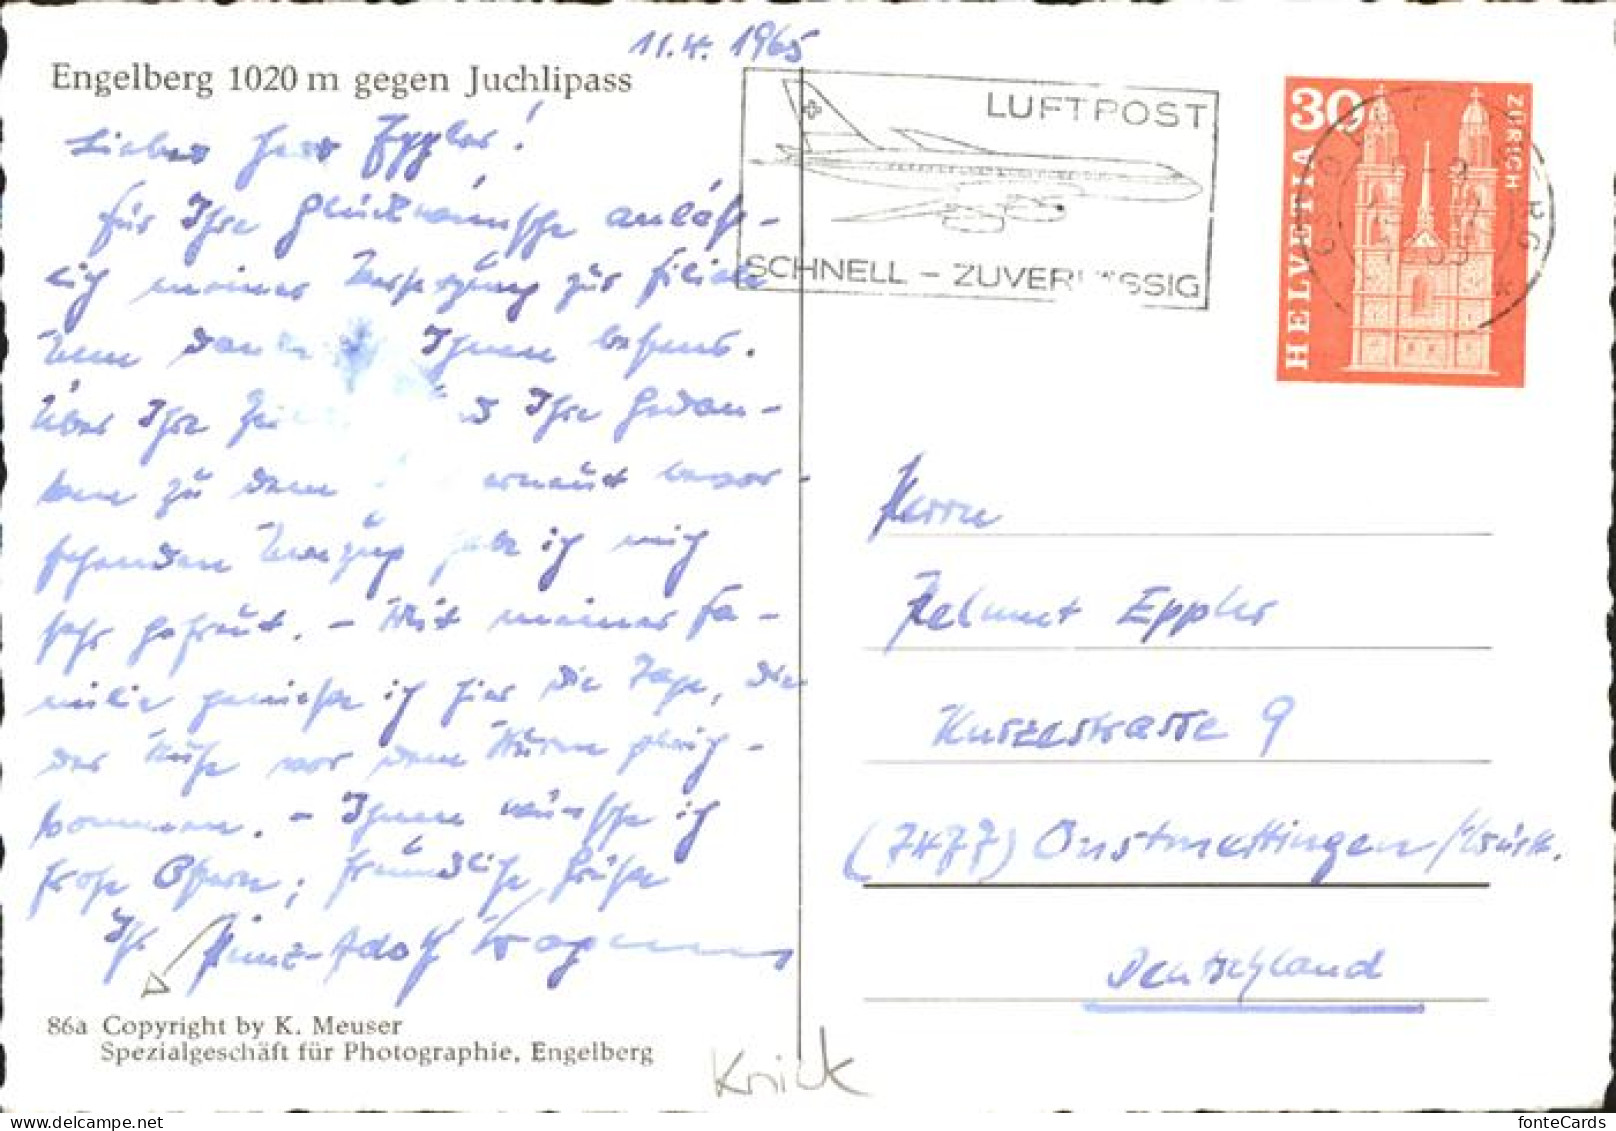 11.4.1965
Engelberg 1020 m gegen Juchlipass
Lieber Herr Eppler!
für Ihre Glückwünsche anläß-
lich meiner Versetzung zur Filiale
Ulm danke Ihnen bestens.
Über Ihre Ihre Gedan-
ken zu dem erneut bevor-
stehenden Umzug habe ich mich
sehr gefreut. - Mit meiner Fa-
milie genieße ich hier die Tage, die
der Ruhe vor dem Sturm gleich-
kommen. - Ihnen wünsche ich
frohe Ostern; freundliche Grüße
Ihr Heinz-Adolf
86a Copyright by K. Meuser
Spezialgeschäft für Photographie, Engelberg
LUFTPOST
SCHNELL - ZUVERLÄSSIG
30
HELVETIA
ZÜRICH
Herrn
Helmut Eppler
Kurzestrasse 9
(7477) Onstmettingen/Württ.
Deutschland
Knick
www.delcampe.net
fonteCards